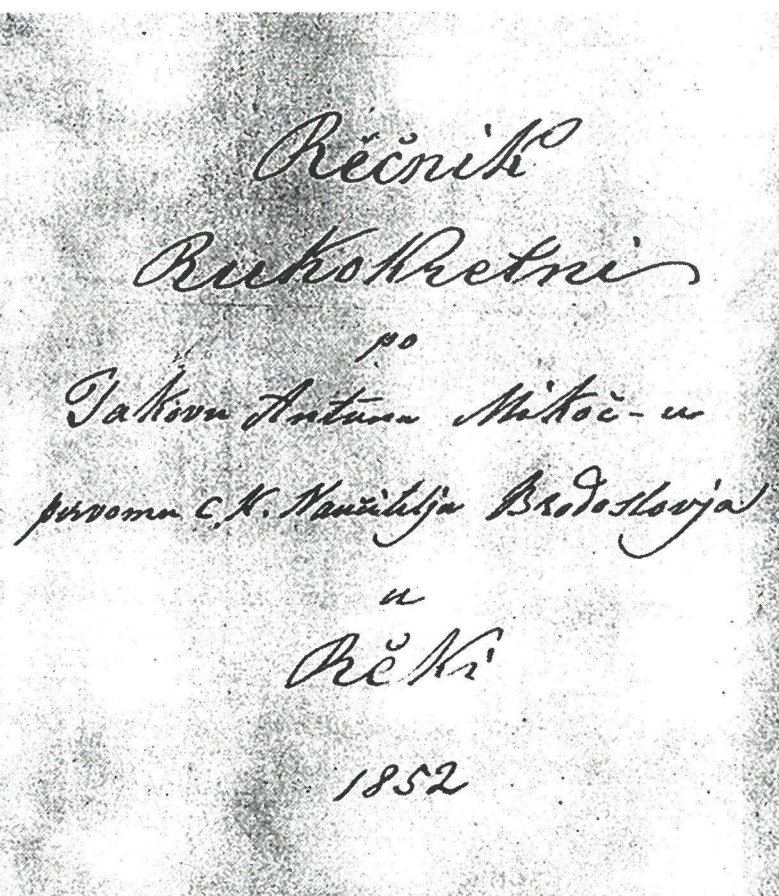 Rěčnik
Rukokretni
po
Jakovu Antunu Mikoč-u
pervomu C. K. Naučitelja Brodoslovja
u
Rěki
1852